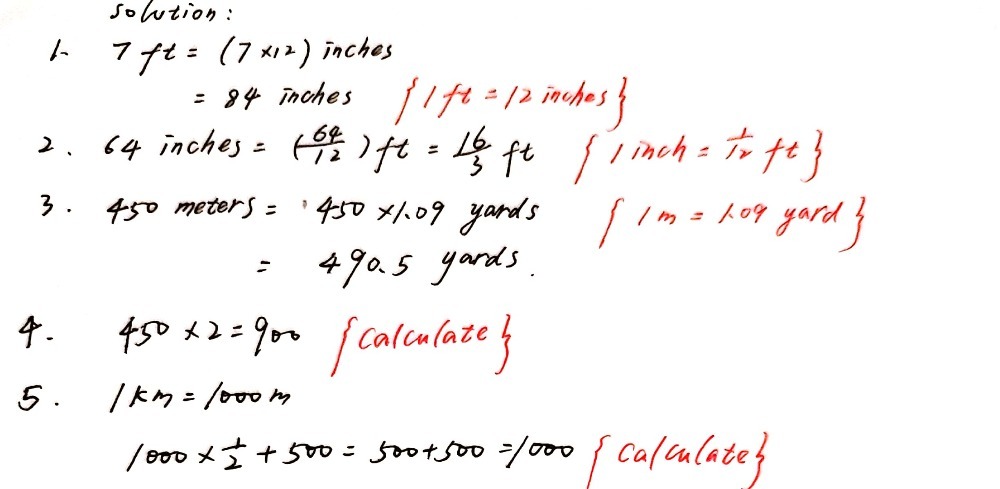 solution:
1. 7 ft = (7 ×12) inches
= 84 inches {1 ft = 12 inches}
2. 64 inches = (64/12) ft = 16/3 ft {1 inch = 1/12 ft}
3. 450 meters = 450 ×1.09 yards {1 m = 1.09 yard}
= 490.5 yards.
4. 450 × 2 = 900 {calculate}
5. 1 km = 1000 m
1000 × 1/2 + 500 = 500+500 =1000 {calculate}